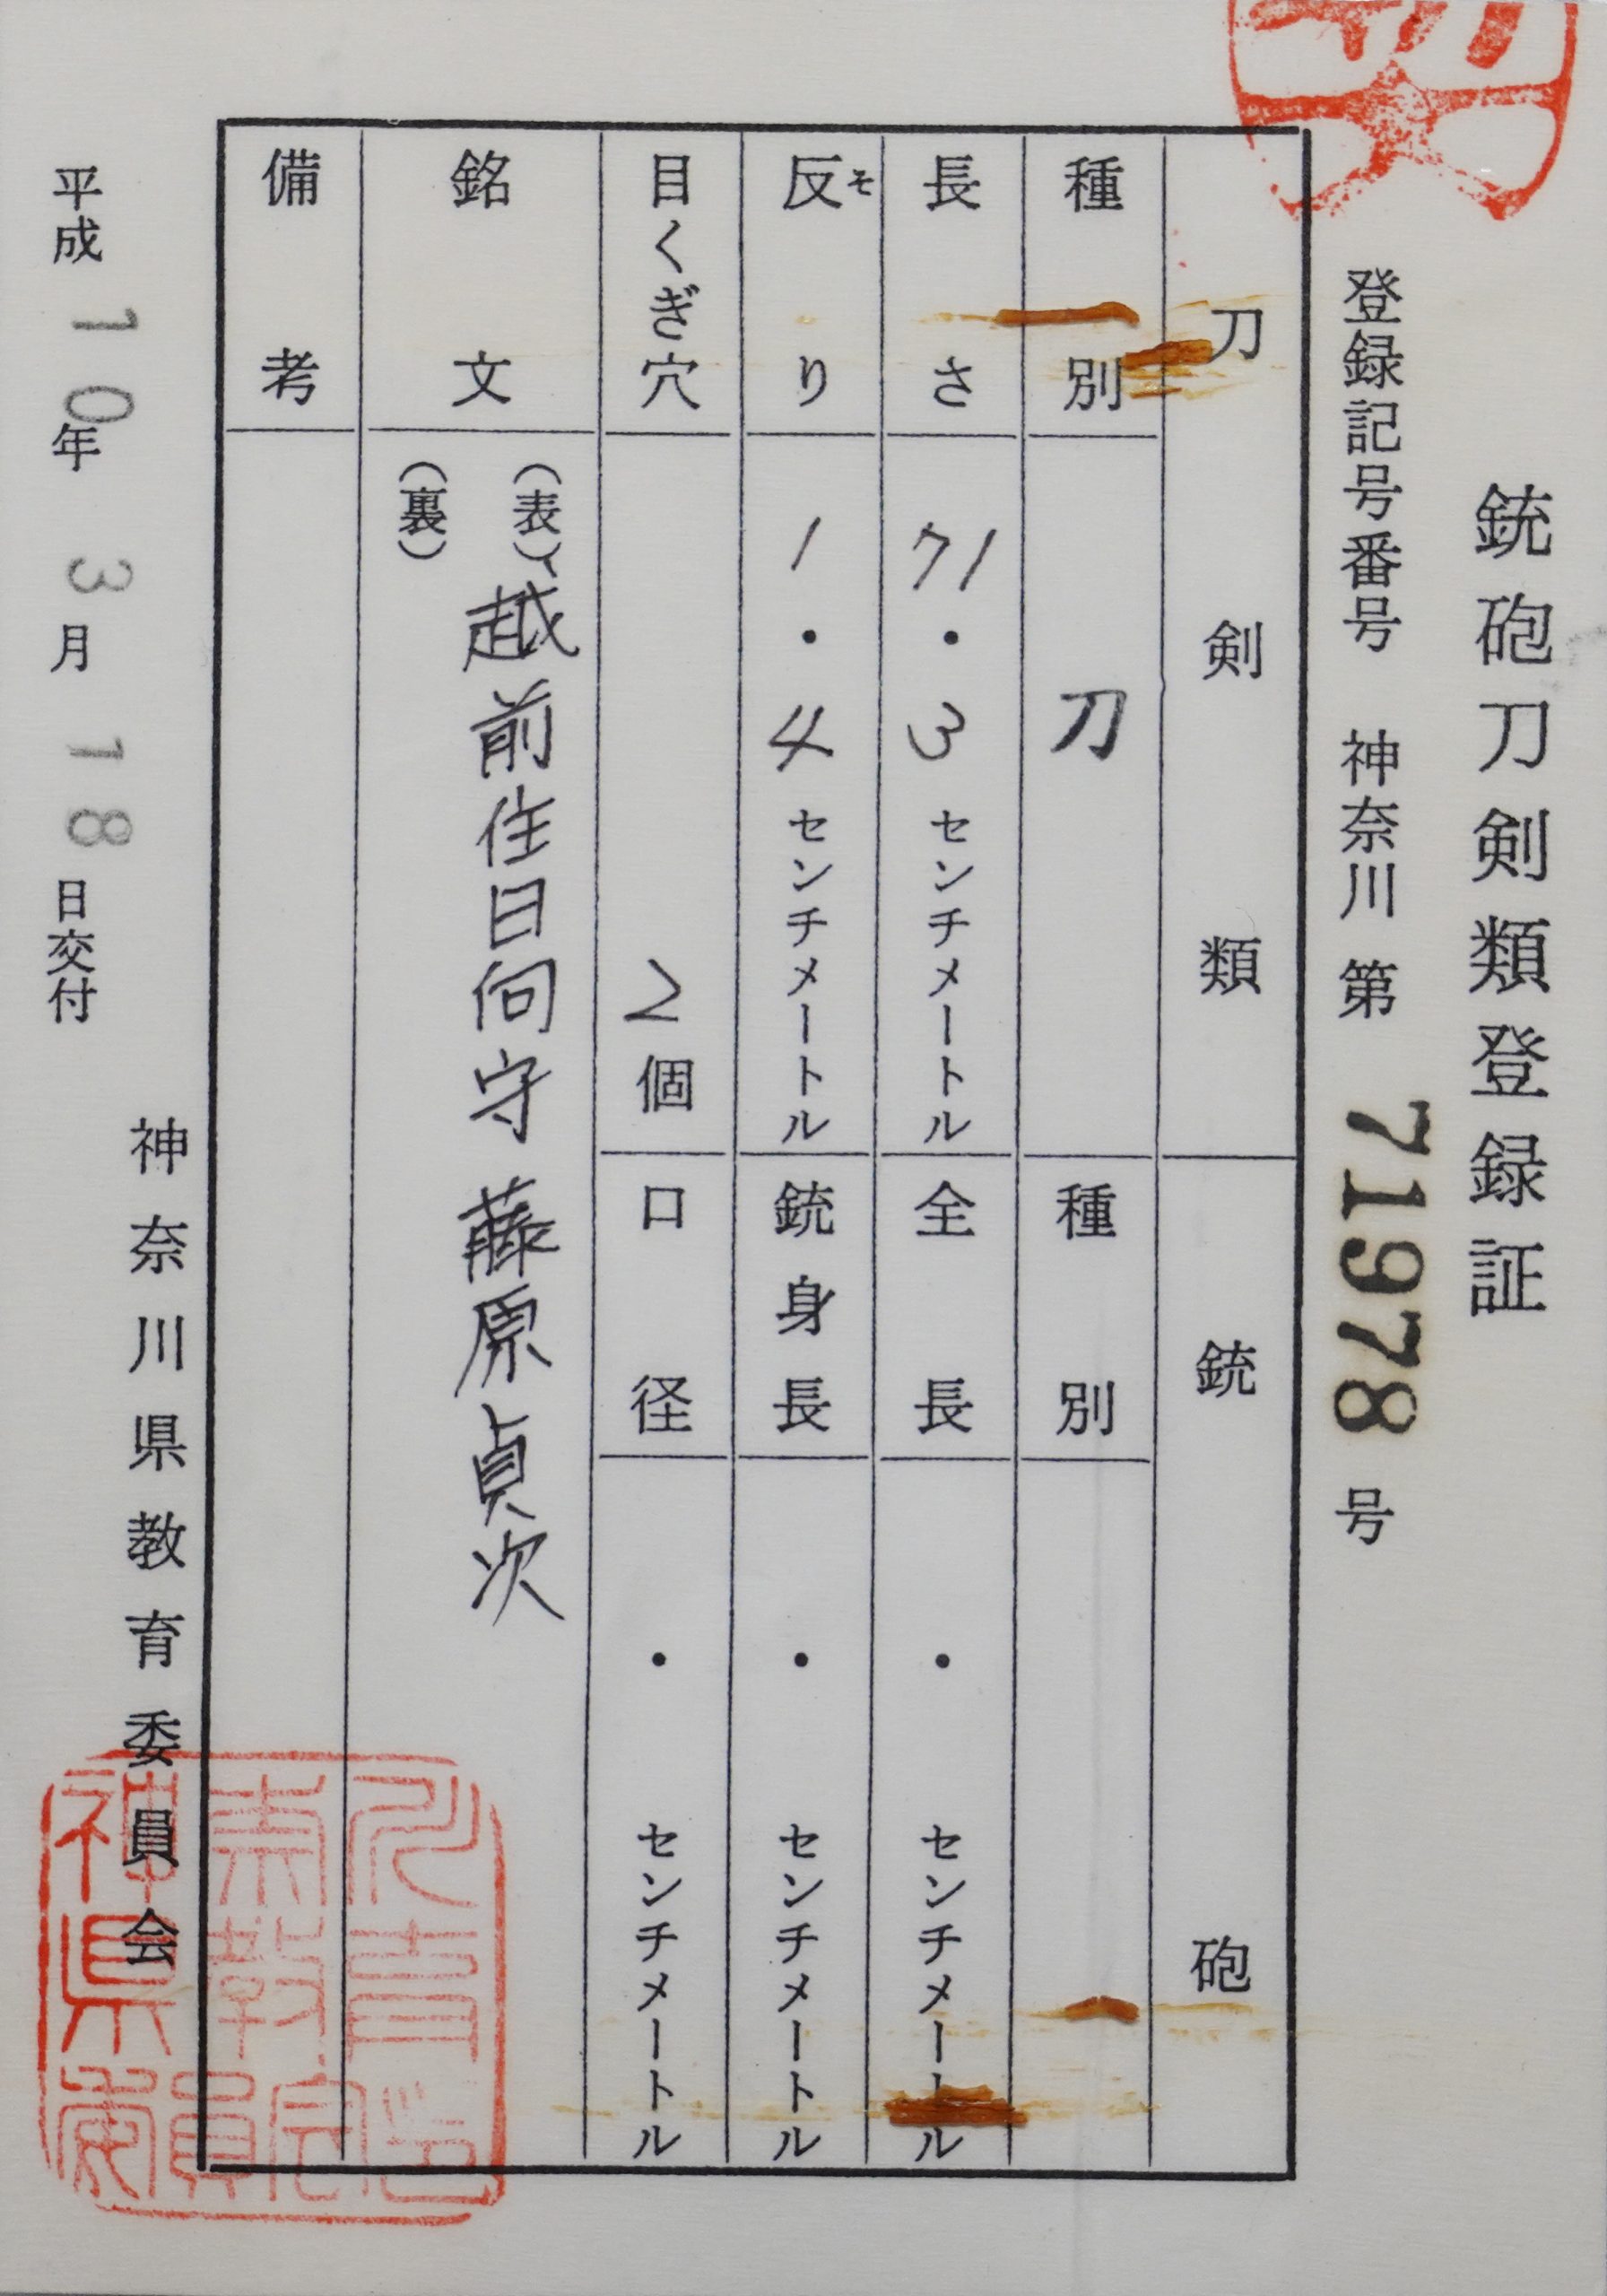 銃砲刀剣類登録証
登録記号番号 神奈川 第 71978 号
刀剣類
銃砲
種別 刀
種別
長さ 71・3 センチメートル
全長 ・ センチメートル
反り そ 1・4 センチメートル
銃身長 ・ センチメートル
目くぎ穴 2個
口径 ・ センチメートル
銘文
(表) 越前住日向守藤原貞次
(裏)
備考
神奈川県教育委員会
平成10年3月18日交付